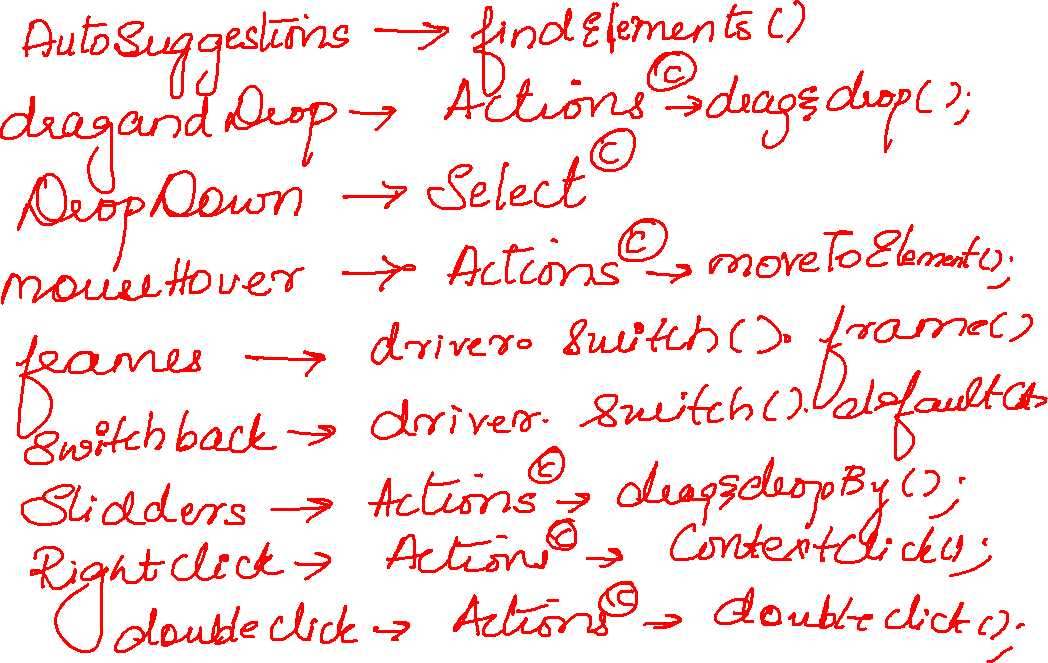 AutoSuggestions → findElements()
dragandDrop → Actions © → drag&drop();
DropDown → Select ©
mouseHover → Actions © → moveToElement();
frames → driver. switch(). frame()
switchback → driver. switch(). default
Slidders → Actions © → drag&dropBy();
Rightclick → Actions © → Contextclick();
doubleclick → Actions © → doubleclick();